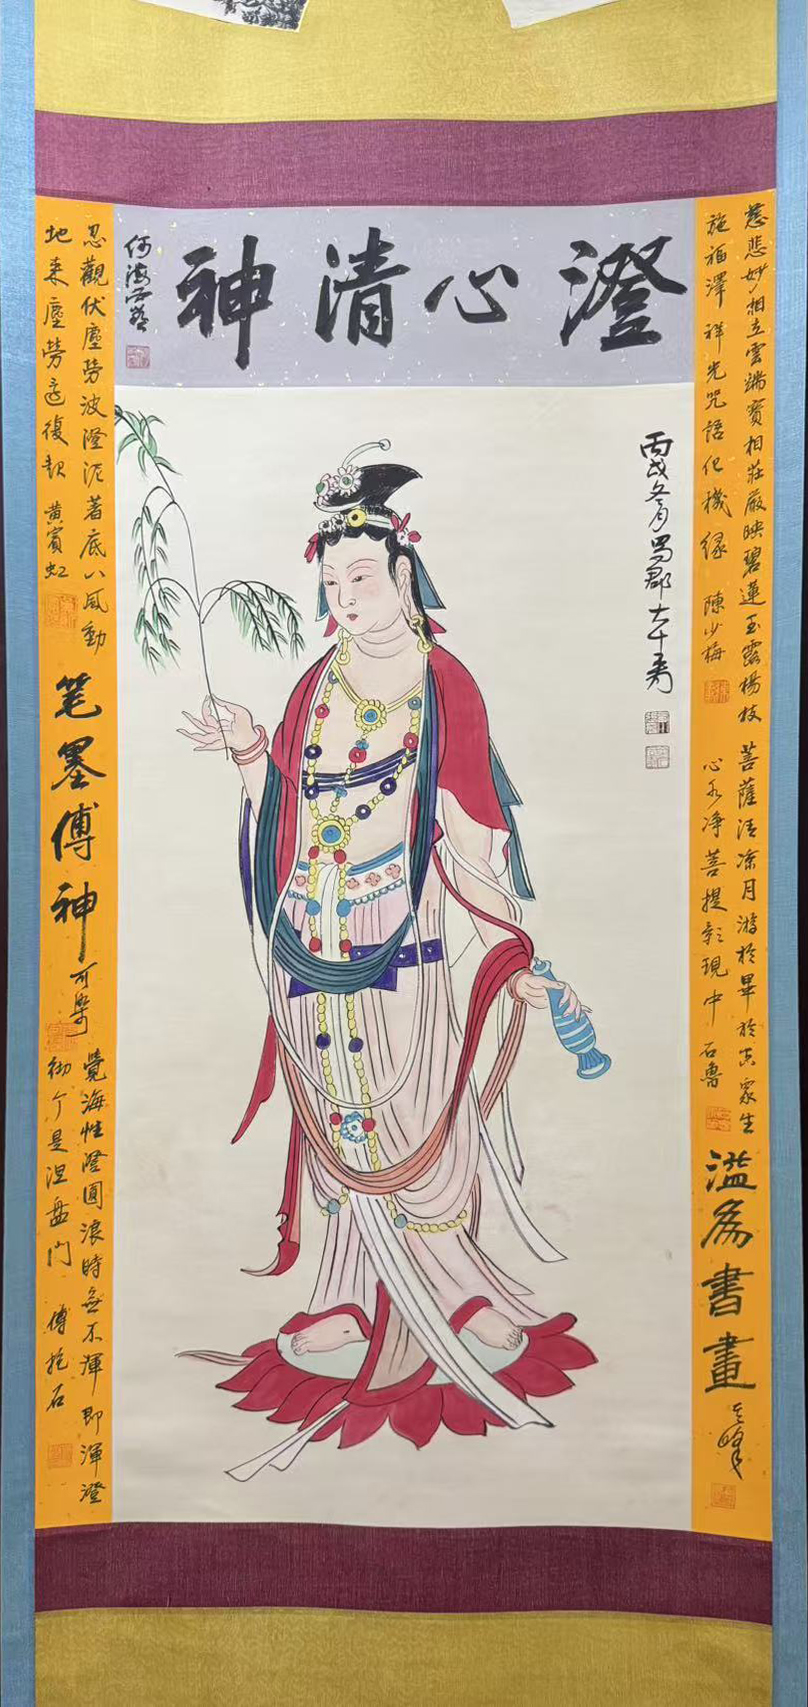 澄心清神
何海霞
丙戌冬月蜀郡大千居
慈悲妙相立雲端寶相莊嚴映碧蓮玉露楊枝
施福澤祥光咒語化機緣 陳少梅
菩薩清凉月游於畢於空衆生
心水净菩提影現中 石魯
溢為書畫
忍觀伏塵勞波澄泥著底八風動
地来塵勞還復起 黄賓虹
笔墨傅神
可染
覺海性澄圓浪時無不渾即渾澄
物个是涅盘门 傅抱石